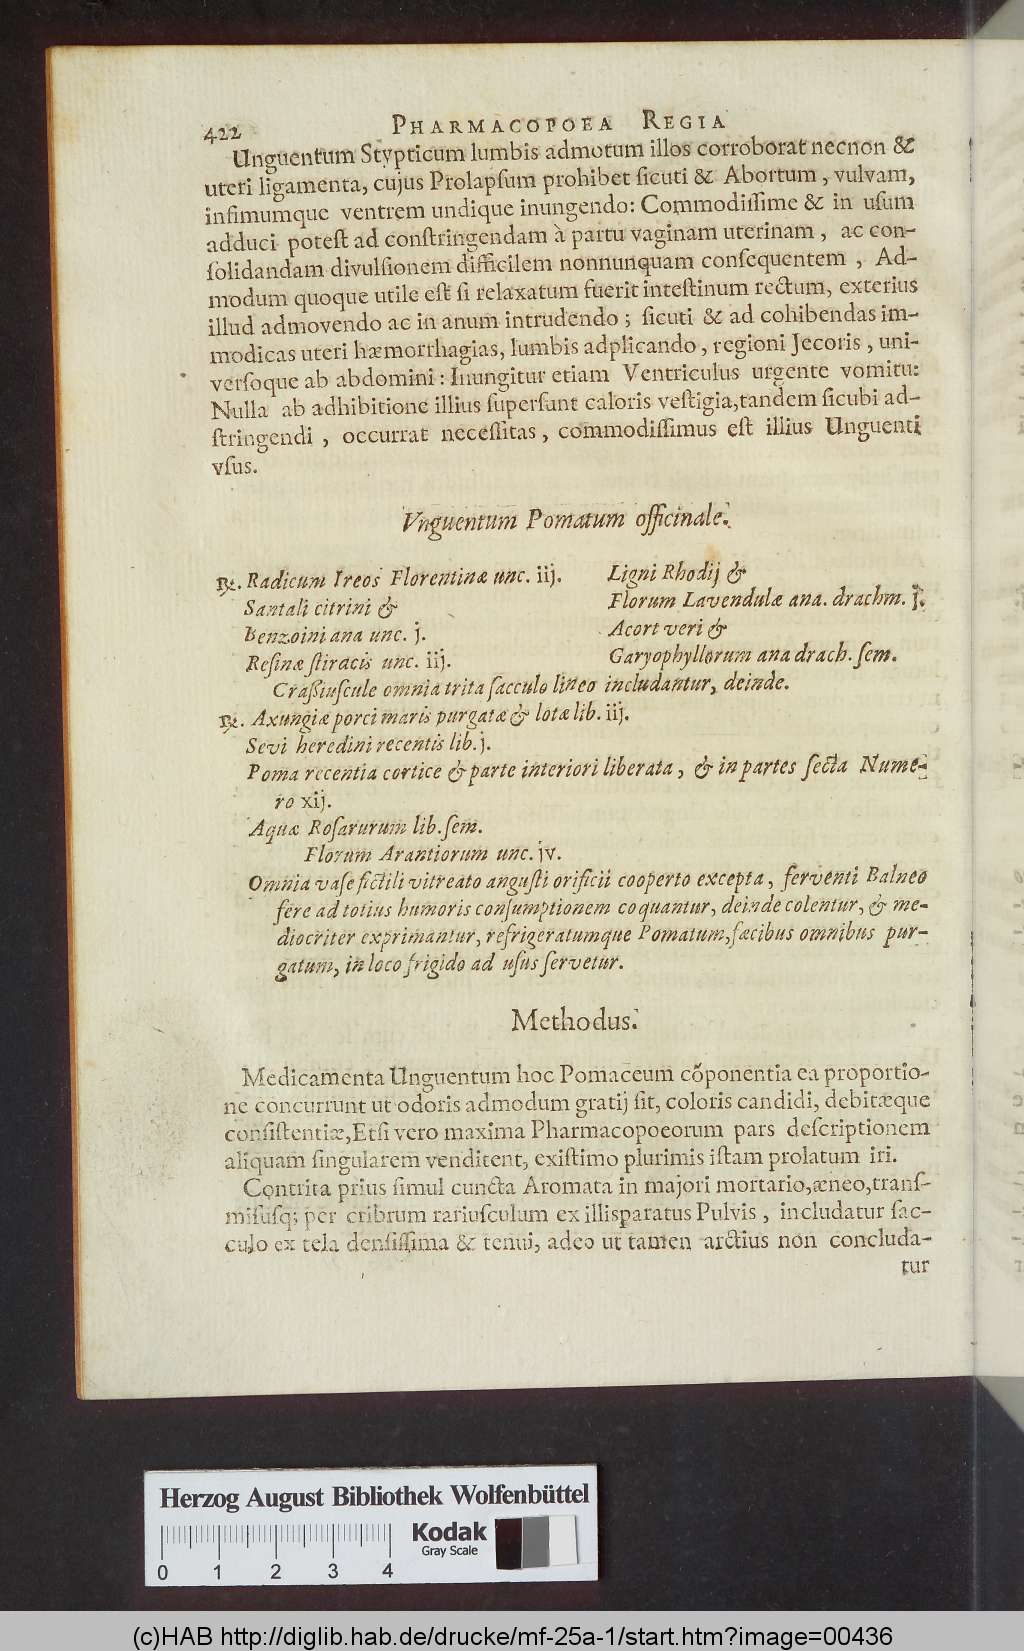 422 PHARMACOPOEA REGIA
Unguentum Stypticum lumbis admotum illos corroborat necnon &
uteri ligamenta, cujus Prolapſum prohibet ſicuti & Abortum, vulvam,
infimumque ventrem undique inungendo: Commodiſſime & in uſum
adduci poteſt ad conſtringendam à partu vaginam uterinam, ac con-
ſolidandam divulſionem difficilem nonnunquam conſequentem, Ad-
modum quoque utile eſt ſi relaxatum fuerit inteſtinum rectum, exterius
illud admovendo ac in anum intrudendo; ſicuti & ad cohibendas im-
modicas uteri hæmorrhagias, lumbis adplicando, regioni Jecoris, uni-
verſoque ab abdomini: Inungitur etiam Ventriculus urgente vomitu:
Nulla ab adhibitione illius ſuperſunt caloris veſtigia, tandem ſicubi ad-
ſtringendi, occurrat neceſſitas, commodiſſimus eſt illius Unguenti
vſus.
Vnguentum Pomatum officinale.
℞. Radicum Ireos Florentinæ unc. iij.
Santali citrini &
Benzoini ana unc. j.
Reſinæ ſtiracis unc. iij.
Ligni Rhodij &
Florum Lavendulæ ana. drachm. j.
Acort veri &
Garyophyllorum ana drach. ſem.
Craßiuſcule omnia trita ſacculo lineo includantur, deinde.
℞. Axungiæ porci maris purgatæ & lotæ lib. iij.
Sevi heredini recentis lib. j.
Poma recentia cortice & parte interiori liberata, & in partes ſecta Nume-
ro xij.
Aquæ Roſarurum lib. ſem.
Florum Arantiorum unc. jv.
Omnia vaſe fictili vitreato anguſti orificii cooperto excepta, ferventi Balneo
fere ad totius humoris conſumptionem coquantur, deinde colentur, & me-
diocriter exprimantur, refrigeratumque Pomatum, fæcibus omnibus pur-
gatum, in loco frigido ad uſus ſervetur.
Methodus.
Medicamenta Unguentum hoc Pomaceum cõponentia ea proportio-
ne concurrunt ut odoris admodum gratij ſit, coloris candidi, debitæque
conſiſtentiæ, Etſi vero maxima Pharmacopoeorum pars deſcriptionem
aliquam ſingularem venditent, exiſtimo plurimis iſtam prolatum iri.
Contrita prius ſimul cuncta Aromata in majori mortario, æneo, tranſ-
miſuſq; per cribrum rariuſculum ex illisparatus Pulvis, includatur ſac-
culo ex tela denſiſſima & tenui, adeo ut tamen arctius non concluda-
tur
Herzog August Bibliothek Wolfenbüttel
Kodak
Gray Scale
0 1 2 3 4
(c)HAB http://diglib.hab.de/drucke/mf-25a-1/start.htm?image=00436